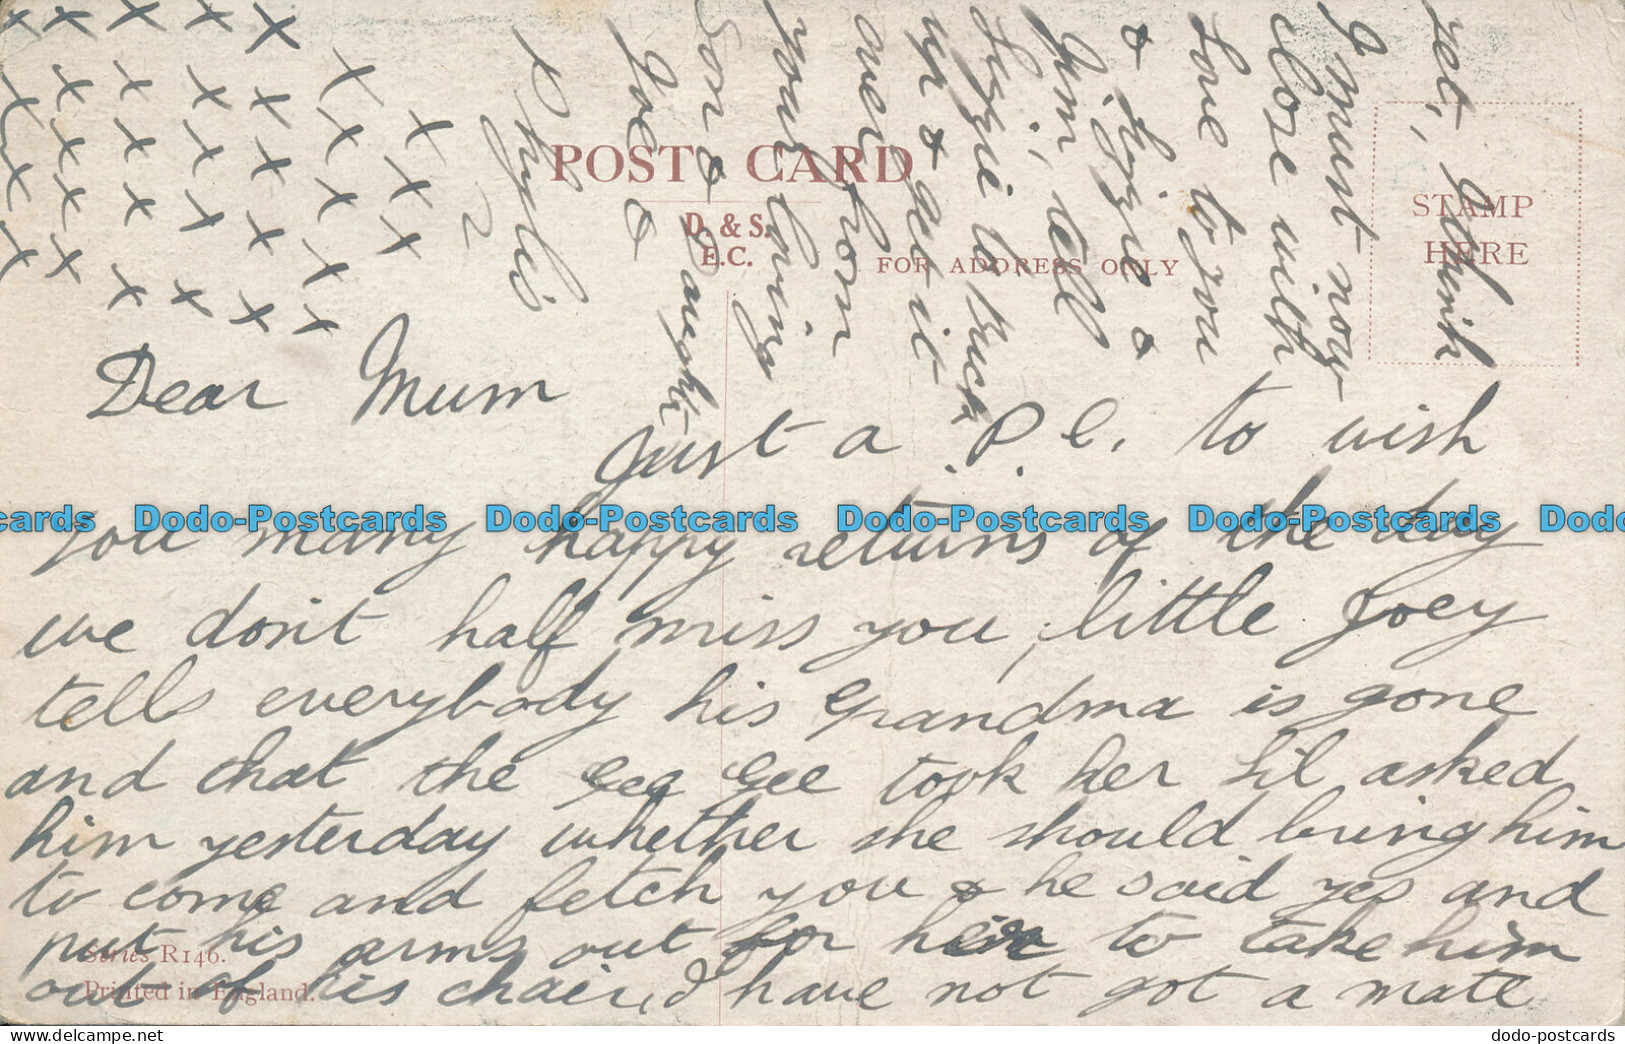 POST CARD
D. & S.
E.C.
FOR ADDRESS ONLY
STAMP
HERE
Dear Mum
Just a P.C. to wish
you many happy returns of the day
we don't half miss you, little Joey
tells everybody his Grandma is gone
and that the Gee Gee took her Lil asked
him yesterday whether she should bring him
to come and fetch you & he said yes and
put his arms out for her to take him
out of his chair, I have not got a mate
yet, I think
I must now
close with
love to you
& Lizzie &
Jim, tell
Lizzie to buck
up & get it
over from
your loving
Son &
Daughter
Joe &
Phyllis
x x x x x
x x x x x x
x x x x x x x
x x x x x x x
x x x x x x x
x x x x
Series R146.
Printed in England.
Dodo-Postcards Dodo-Postcards Dodo-Postcards Dodo-Postcards
dodo-postcards